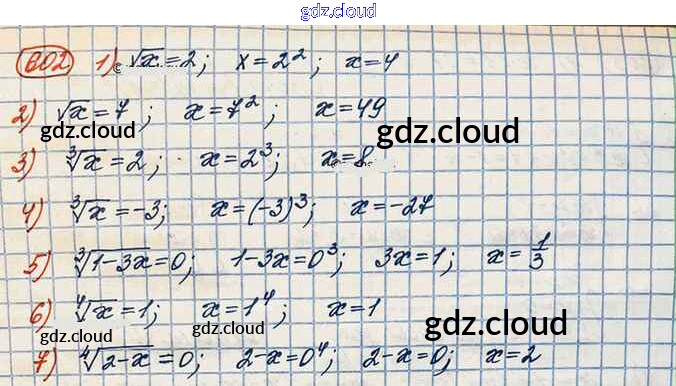 gdz.cloud
602 1) √x = 2; x = 2²; x = 4
2) √x = 7; x = 7²; x = 49
gdz.cloud gdz.cloud
3) ∛x = 2; x = 2³; x = 8
4) ∛x = -3; x = (-3)³; x = -27
5) ∛(1-3x) = 0; 1-3x = 0³; 3x = 1; x = 1/3
6) ∜x = 1; x = 1⁴; x = 1
gdz.cloud gdz.cloud gdz.cloud
7) ∜(2-x) = 0; 2-x = 0⁴; 2-x = 0; x = 2